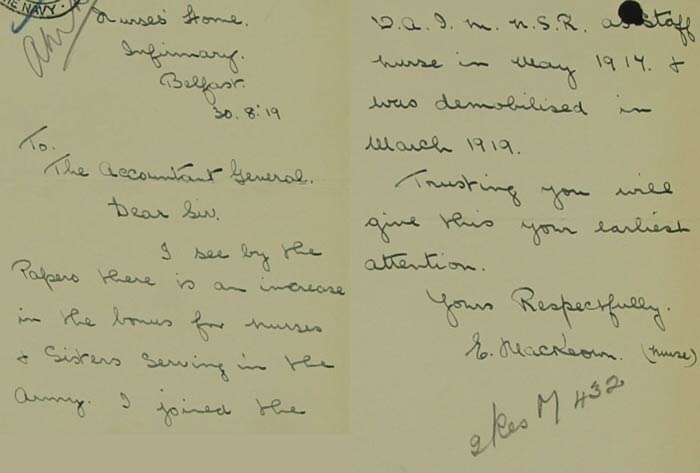 THE NAVY.
Nurses' Home.
Infirmary.
Belfast.
30.8.19
To.
The Accountant General.
Dear Sir.
I see by the
Papers there is an increase
in the bonus for nurses
& Sisters serving in the
Army. I joined the
Q.A.I.M.N.S.R. as Staff
nurse in May 1917. &
was demobilised in
March 1919.
Trusting you will
give this your earliest
attention.
Yours Respectfully.
E. MacKeown. (Nurse)
M 432